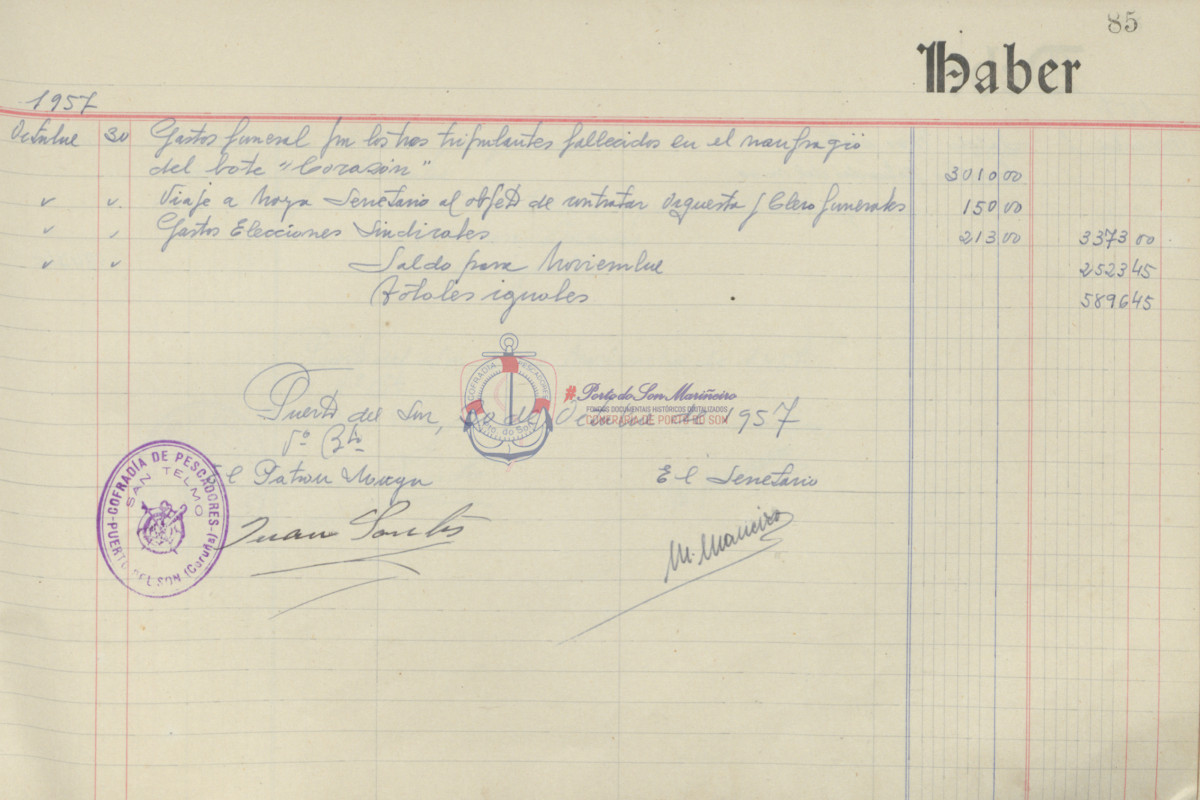 85
Haber
1957
Octubre 30 Gastos funeral por los tres tripulantes fallecidos en el naufragio
del bote "Corazón" 3010 00
" " Viaje a Noya Secretario al objeto de contratar orquesta y Clero funerales 150 00
" " Gastos Elecciones Sindicales 213 00 3373 00
" " Saldo para Noviembre 2523 45
Totales iguales 5896 45
Puerto del Son, 30 de Octubre de 1957
Vº Bº
El Patron Mayor El Secretario
Juan Santos M. Maneiro
COFRADIA DE PESCADORES
SAN TELMO
PUERTO DEL SON (Coruña)
COFRADÍA PESCADORES
Pto. do Son
# Porto do Son Mariñeiro
FONDOS DOCUMENTAIS HISTÓRICOS DIXITALIZADOS
CONFRARÍA DE PORTO DO SON